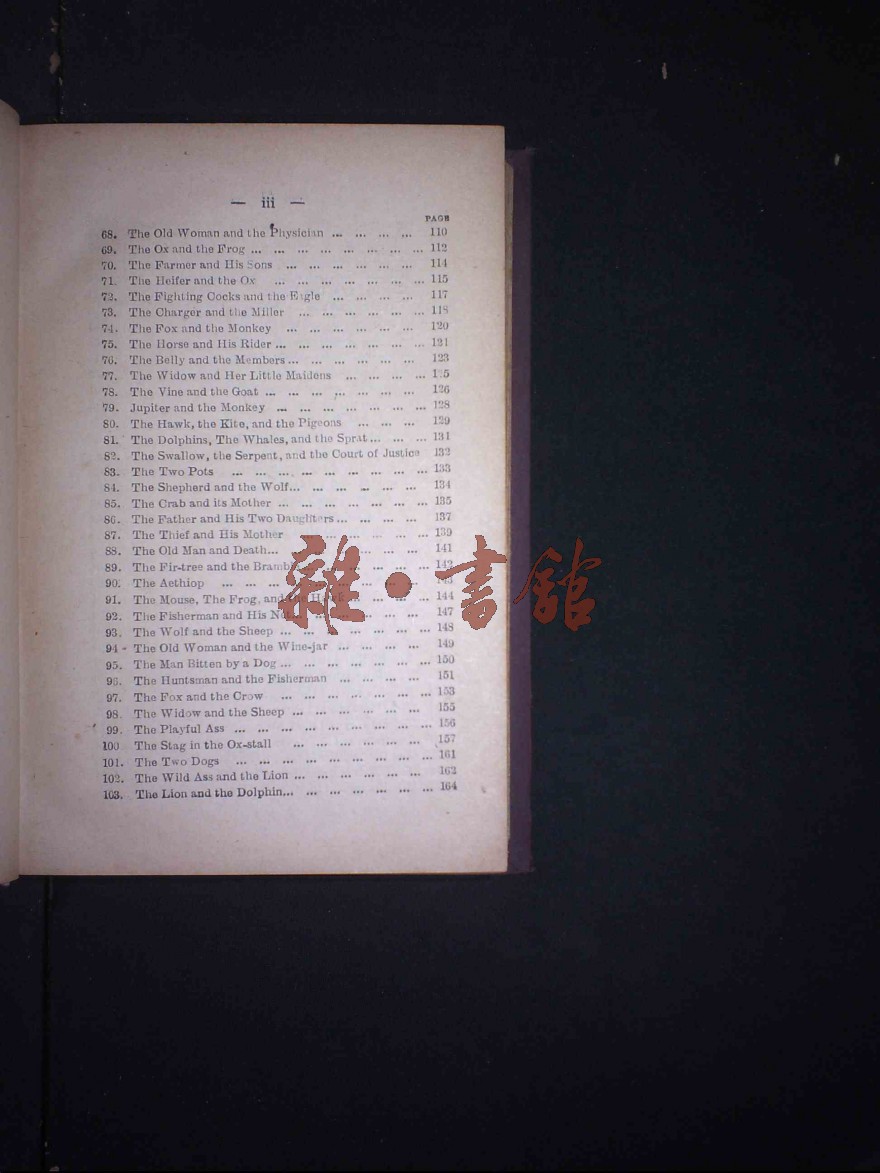 — iii —
PAGE
68. The Old Woman and the Physician ... ... ... ... 110
69. The Ox and the Frog ... ... ... ... ... ... ... ... 112
70. The Farmer and His Sons ... ... ... ... ... ... 114
71. The Heifer and the Ox ... ... ... ... ... ... ... 115
72. The Fighting Cocks and the Eagle ... ... ... ... 117
73. The Charger and the Miller ... ... ... ... ... ... 118
74. The Fox and the Monkey ... ... ... ... ... ... 120
75. The Horse and His Rider ... ... ... ... ... ... ... 121
76. The Belly and the Members ... ... ... ... ... ... 123
77. The Widow and Her Little Maidens ... ... ... ... 125
78. The Vine and the Goat ... ... ... ... ... ... ... 126
79. Jupiter and the Monkey ... ... ... ... ... ... ... 128
80. The Hawk, the Kite, and the Pigeons ... ... ... 129
81. The Dolphins, The Whales, and the Sprat ... ... ... 131
82. The Swallow, the Serpent, and the Court of Justice 132
83. The Two Pots ... ... ... ... ... ... ... ... ... 133
84. The Shepherd and the Wolf... ... ... ... ... ... 134
85. The Crab and its Mother ... ... ... ... ... ... ... 135
86. The Father and His Two Daughters ... ... ... ... 137
87. The Thief and His Mother ... ... ... ... ... ... 139
88. The Old Man and Death... ... ... ... ... ... ... 141
89. The Fir-tree and the Bramble ... ... ... ... ... 142
90. The Aethiop ... ... ... ... ... ... ... ... ... 143
91. The Mouse, The Frog, and the Hawk ... ... ... ... 144
92. The Fisherman and His Net ... ... ... ... ... ... 147
93. The Wolf and the Sheep ... ... ... ... ... ... ... 148
94. The Old Woman and the Wine-jar ... ... ... ... 149
95. The Man Bitten by a Dog ... ... ... ... ... ... ... 150
96. The Huntsman and the Fisherman ... ... ... ... 151
97. The Fox and the Crow ... ... ... ... ... ... ... 153
98. The Widow and the Sheep ... ... ... ... ... ... 155
99. The Playful Ass ... ... ... ... ... ... ... ... ... 156
100 The Stag in the Ox-stall ... ... ... ... ... ... 157
101. The Two Dogs ... ... ... ... ... ... ... ... ... 161
102. The Wild Ass and the Lion ... ... ... ... ... ... 162
103. The Lion and the Dolphin... ... ... ... ... ... ... 164
雜·書館